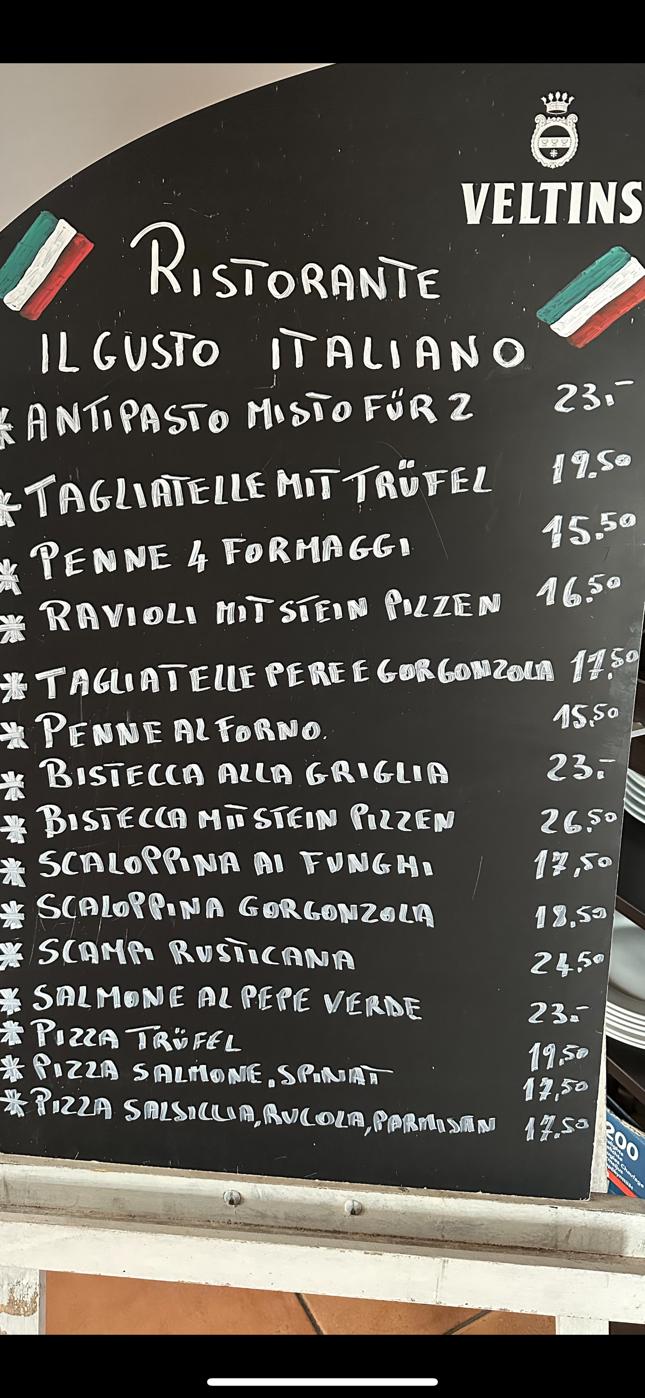 VELTINS
RISTORANTE
IL GUSTO ITALIANO
* ANTIPASTO MISTO FÜR 2 23.-
* TAGLIATELLE MIT TRÜFEL 19.50
* PENNE 4 FORMAGGI 15.50
* RAVIOLI MIT STEIN PILZEN 16.50
* TAGLIATELLE PERE E GORGONZOLA 17.50
* PENNE AL FORNO. 15.50
* BISTECCA ALLA GRIGLIA 23.-
* BISTECCA MIT STEIN PILZEN 26.50
* SCALOPPINA AI FUNGHI 17,50
* SCALOPPINA GORGONZOLA 18.50
* SCAMPI RUSTICANA 24.50
* SALMONE AL PEPE VERDE 23.-
* PIZZA TRÜFEL 19.50
* PIZZA SALMONE, SPINAT 17,50
* PIZZA SALSICCIA, RUCOLA, PARMISAN 17.50
200